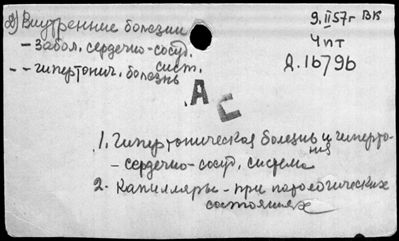 2) Внутренние болезни
– забол. сердечно-сосуд. сист.
– – гипертонич. болезнь
9.II 57г ВК
Чпт
Д.16796
АС
1. Гипертоническая болезнь и гиперто-
ния
– сердечно-сосуд. система
2. Капилляры – при патологических
состояниях